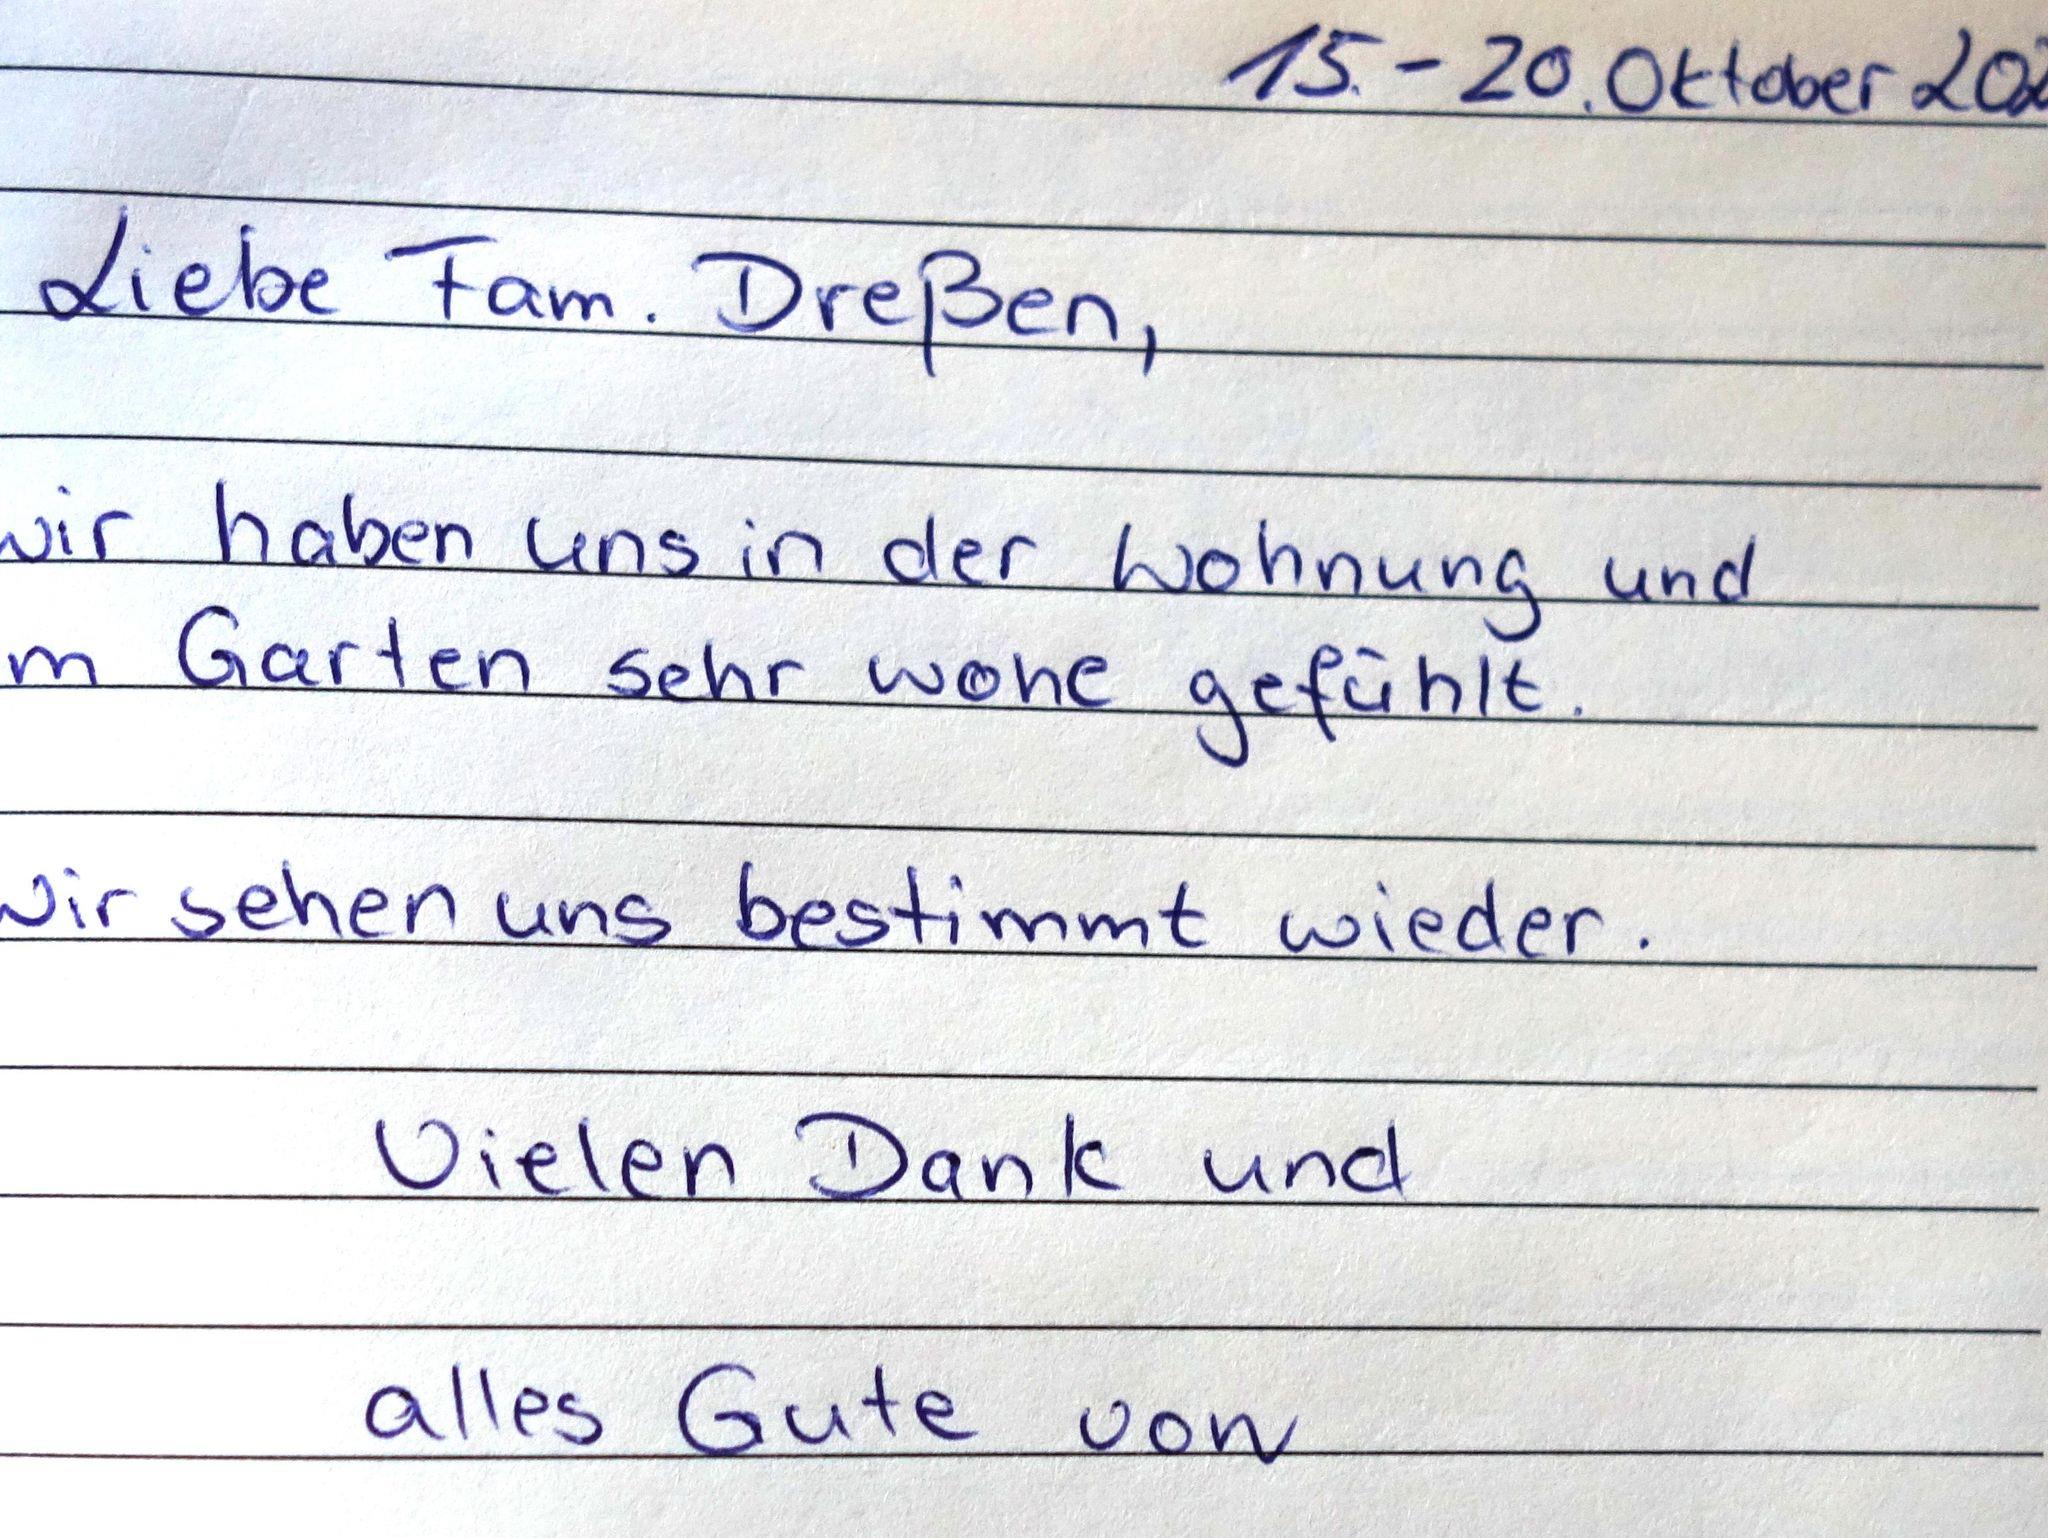 15.-20. Oktober 202
Liebe Fam. Dreßen,
wir haben uns in der Wohnung und
m Garten sehr wohl gefühlt.
Wir sehen uns bestimmt wieder.
Vielen Dank und
alles Gute von